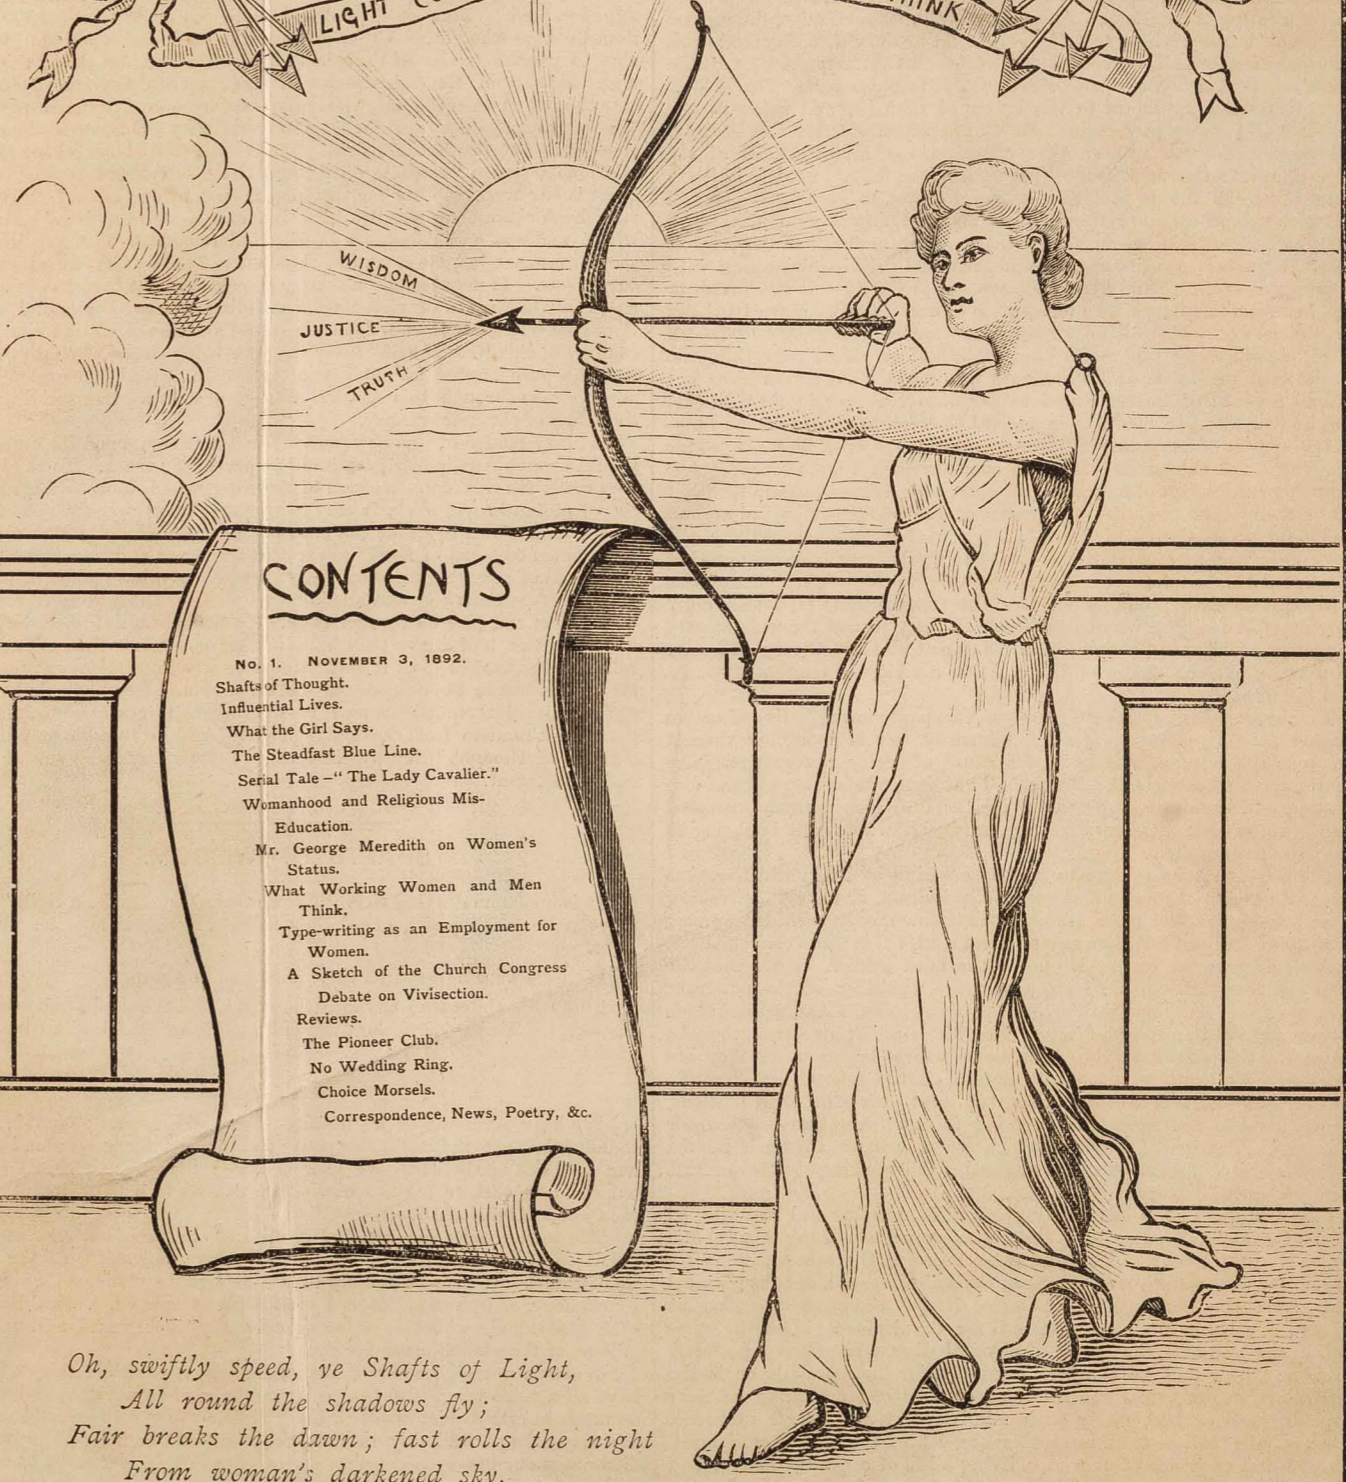 LIGHT
THINK
WISDOM
JUSTICE
TRUTH
CONTENTS
No. 1. NOVEMBER 3, 1892.
Shafts of Thought.
Influential Lives.
What the Girl Says.
The Steadfast Blue Line.
Serial Tale—“ The Lady Cavalier.”
Womanhood and Religious Mis-
Education.
Mr. George Meredith on Women's
Status.
What Working Women and Men
Think.
Type-writing as an Employment for
Women.
A Sketch of the Church Congress
Debate on Vivisection.
Reviews.
The Pioneer Club.
No Wedding Ring.
Choice Morsels.
Correspondence, News, Poetry, &c.
Oh, swiftly speed, ye Shafts of Light,
All round the shadows fly ;
Fair breaks the dawn ; fast rolls the night
From woman's darkened sky.